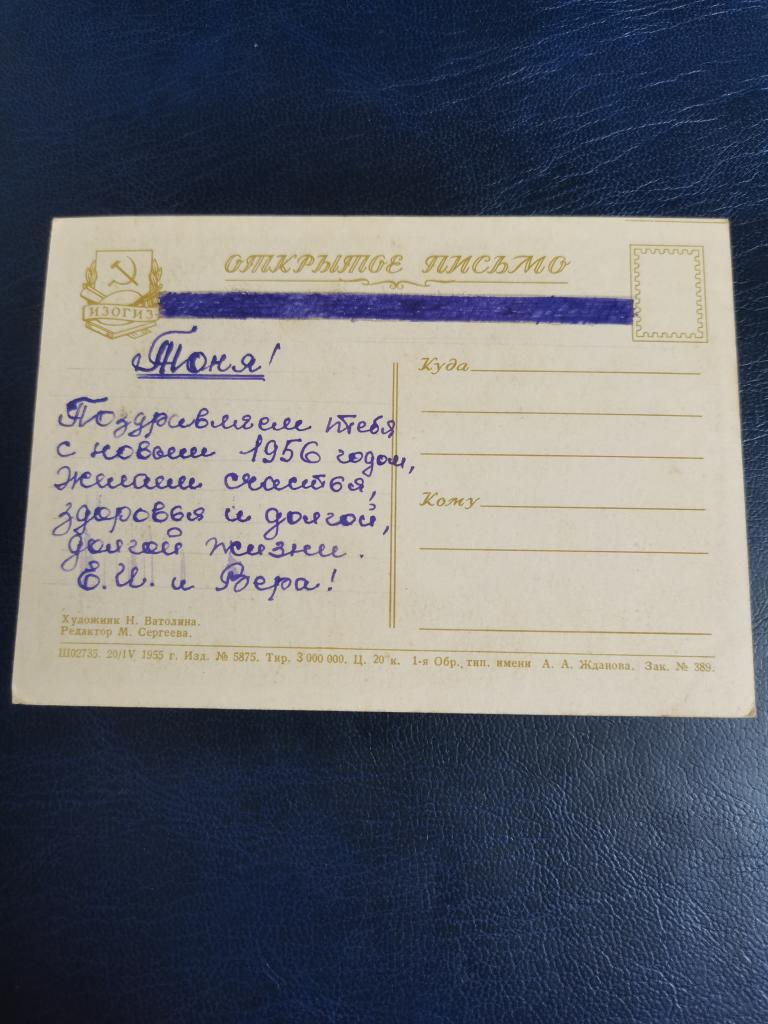 ОТКРЫТОЕ ПИСЬМО
ИЗОГИЗ
Тоня!
Поздравляем тебя
с новым 1956 годом,
желаем счастья,
здоровья и долгой,
долгой жизни.
Е.И. и Вера!
Куда
Кому
Художник Н. Ватолина.
Редактор М. Сергеева.
Ш02735. 20/IV 1955 г. Изд. № 5875. Тир. 3 000 000. Ц. 20 к. 1-я Обр. тип. имени А. А. Жданова. Зак. № 389.